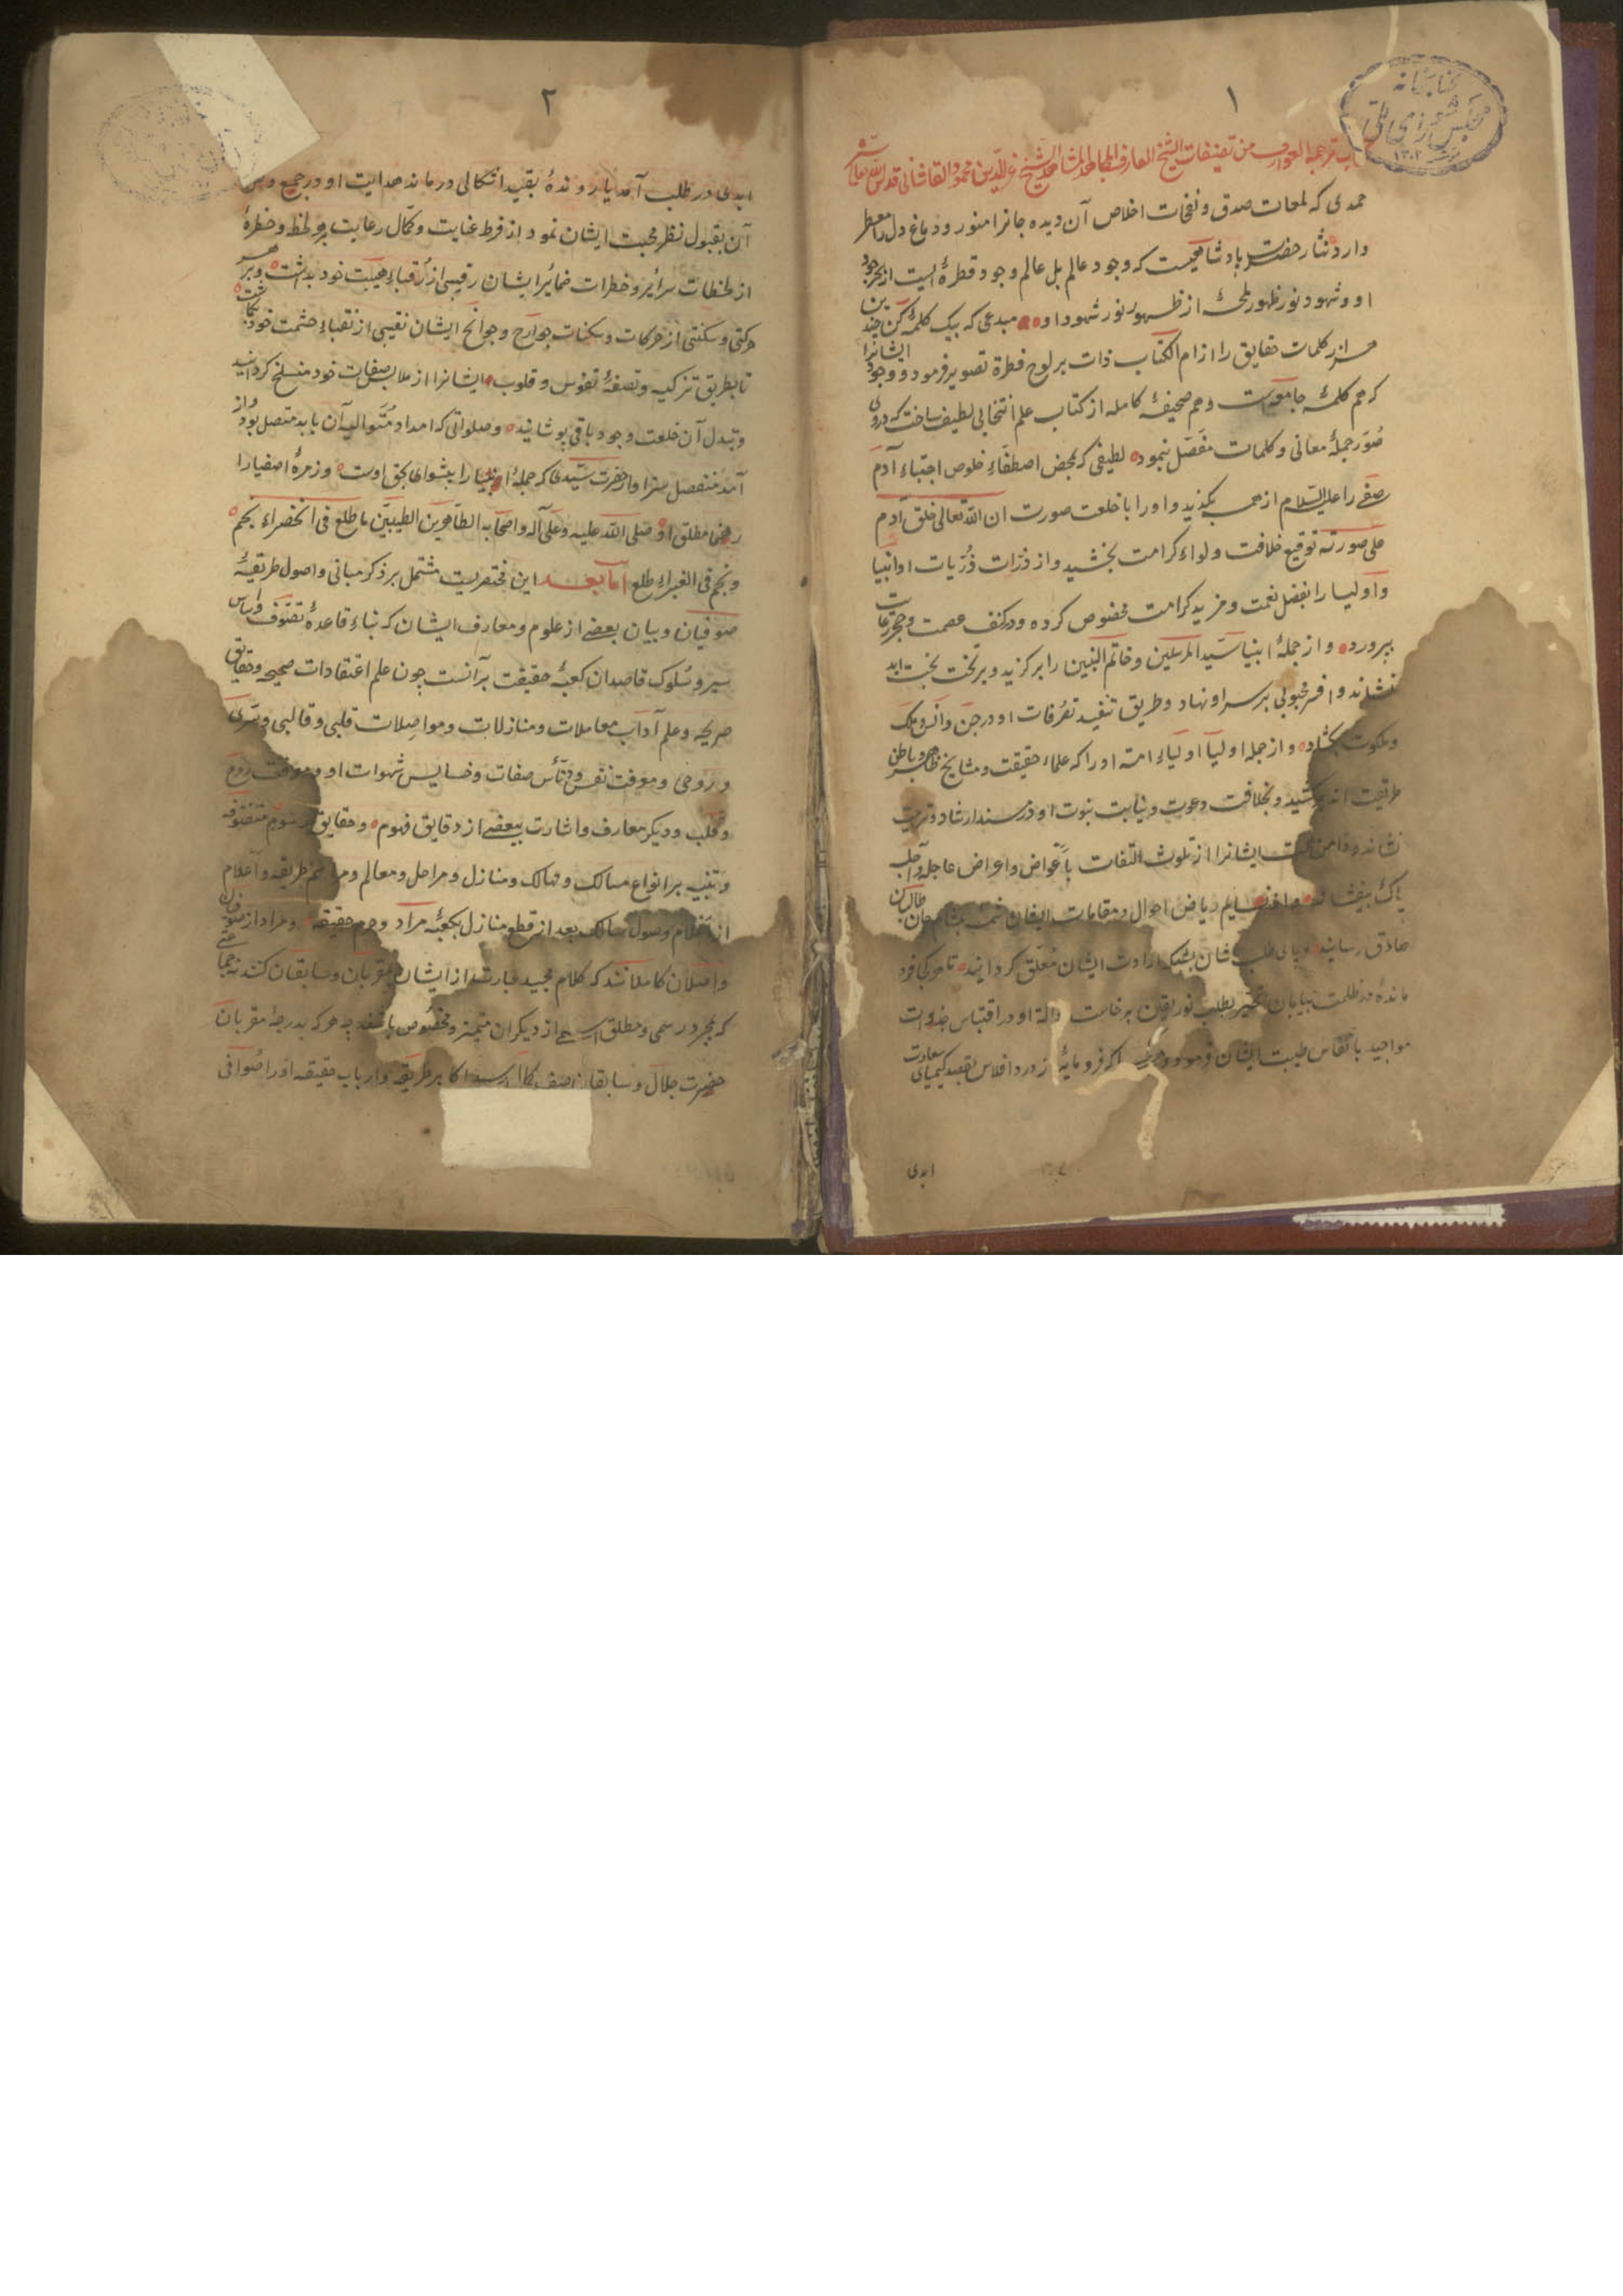 ۱
کتابخانه
مجلس شورای ملی
۱۳۰۲
ترجمة العوارف من تصنیفات الشیخ العارف عزّ الدّین محمود القاشانی قدس الله
حمدی که لمعات صدق و نفحات اخلاص آن دیده جانرا منور و دماغ دل را معطر
دارد نثار حضرت پادشاهیست که وجود عالم بل عالم وجود قطرهٔ ایست از بحر جود
او و شهود نور ظهور لمحهٔ از ظهور نور شهود او مبدعی که بیک کلمهٔ کن چندین
هزار کلمات حقایق را از ام الکتاب ذات بر لوح فطرة تصویر فرمود و وجود ایشانرا
که هم کلمهٔ جامعه است و هم صحیفهٔ کامله از کتاب علم انتخابی لطیف ساخت که دروی
صُوَر جملهٔ معانی و کلمات مفصّل بنمود لطیفی که بمحض اصطفاءِ خلوص اجتباء آدم
صفی را علیه السّلام از همه بگزید و او را با خلعت صورت ان الله تعالی خلق آدم
علی صورته توقیع خلافت و لواء کرامت بخشید و از ذرّات ذُرّیات او انبیا
و اولیا را بفضل نعمت و مزید کرامت مخصوص کرده و در کنف عصمت و حجر رعایت
بپرورد و از جملهٔ انبیا سیّد المرسلین و خاتم النبیین را برگزید و بر تخت بخت ابد
بنشاند و افسر محبوبی بر سر او نهاد و طریق تنفیذ تصرّفات او در جنّ و انس و ملک
و ملکوت بگشاد و از جمله اولیا اولیاءِ امة او را که علماء حقیقت و مشایخ ظاهر و باطن
طریقت اند برکشید و بخلافت دعوت و نیابت نبوت او در مسند ارشاد و تربیت
نشاند و دامن همت ایشانرا از تلوث التفات باَعْواض و اعراض عاجل و آجل
پاک بیفشاند و از نسایم ریاض احوال و مقامات ایشان بمشام جان طالبان
صادق رسانید و پای طلب شان بشبک ارادت ایشان مُعلّق گردانید تا هر کی فرو
مانده در ظلمت بیابان تحیّر بطلب نور یقین برخاست دلالة او در اقتباس جذوات
مواجید باَنفاس طیبت ایشان فرمود و هر اگر فرومایهٔ از درد افلاس بقصد کیمیای سعادت
ابدی
۲
ابدی در طلب آمد یا روندهٔ بقید اشکالی در ماند هدایت او در جمیع و
آن بقبول نظر محبت ایشان نمود از فرط عنایت و کمال رعایت بر هر لحظ و خطرهٔ
از لحظات سرائر و خطرات ضمائر ایشان رقیبی از رُقباءِ هیبت خود بداشت و بر هر
حرکتی و سکنتی از حرکات و سکنات جوارح و جوانح ایشان نقیبی از نقباءِ حشمت خود بگماشت
تا بطریق تزکیه و تصفیهٔ نفوس و قلوب ایشانرا از ملابس صفات خود منسلخ گردانید
و ببدل آن خلعت وجود باقی پوشانید و صلواتی که امداد مُتوالیهٔ آن بابد متصل بود و از
آمد منفصل سزاوار حضرت سیّد ما که جملهٔ انبیا را پیشوای بحق اوست و زمرهٔ اصفیا را
رهنما مطلق او صلی الله علیه و علی آله و اصحابه الطاهرین الطیبیّن ما طلع فی الخضراء نجم
و نجم فی الغبراءِ طلع اما بعد این مختصریست مشتمل بر ذکر مبانی و اصول طریقهٔ
صوفیان و بیان بعضی از علوم و معارف ایشان که بناءِ قاعدهٔ تصوّف و اساس
سیر و سُلوک قاصدان کعبهٔ حقیقت برآنست چون علم اعتقادات صحیح و حقایق
صریحه و علم آداب معاملات و منازلات و مواصِلات قلبی و قالبی و سّری
و رَوحی و معرفت نفس و دسائس صفات و خسایس شهوات او و معرفت روح
و قلب و دیگر معارف و اشارت ببعضی از دقایق فهوم و حقایق رسوم متصوفه
و تنبیه بر انواع مسالک و مهالک و منازل و مراحل و معالم و مراسم طریقه و اعلام
از اعلام وصول سالک بعد از قطع منازل بکعبهٔ مراد و حرم حقیقة و مراد از صوفیان
واصلان کاملانند که کلام مجید عبارت از ایشان بمقربان و سابقان کنند نه جماعتی
که بمجرد رسمی و مطلق اسمی از دیگران متمیز و مخصوص باشند چه هر که بدرجهٔ مقربان
حضرت جلال و سابقان صف کمال رسید اکابر طریقه و ارباب حقیقه او را صوفی